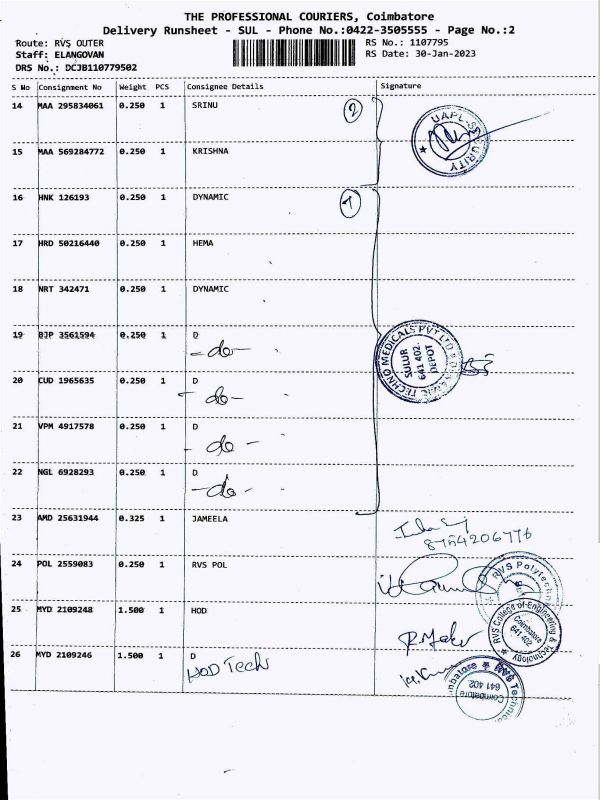 THE PROFESSIONAL COURIERS, Coimbatore
Delivery Runsheet - SUL - Phone No.:0422-3505555 - Page No.:2
Route: RVS OUTER
Staff: ELANGOVAN
DRS No.: DCJB110779502
RS No.: 1107795
RS Date: 30-Jan-2023
S No Consignment No Weight PCS Consignee Details Signature
14 MAA 295834061 0.250 1 SRINU 2
UAPL-SECURITY
15 MAA 569284772 0.250 1 KRISHNA
16 HNK 126193 0.250 1 DYNAMIC 7
17 HRD 50216440 0.250 1 HEMA
18 NRT 342471 0.250 1 DYNAMIC
19 BJP 3561594 0.250 1 D
-do-
DYNAMIC TECHNO MEDICALS PVT LTD
SULUR
641 402.
DEPOT
20 CUD 1965635 0.250 1 D
-do-
21 VPM 4917578 0.250 1 D
-do-
22 NGL 6928293 0.250 1 D
-do-
23 AMD 25631944 0.325 1 JAMEELA
8754206776
24 POL 2559083 0.250 1 RVS POL
RVS Polytechn
25 MYD 2109248 1.500 1 HOD
RVS College of Engineering & Technology
Coimbatore
641 402
26 MYD 2109246 1.500 1 D
HOD Tech
RVS Technical
mbatore
641 402